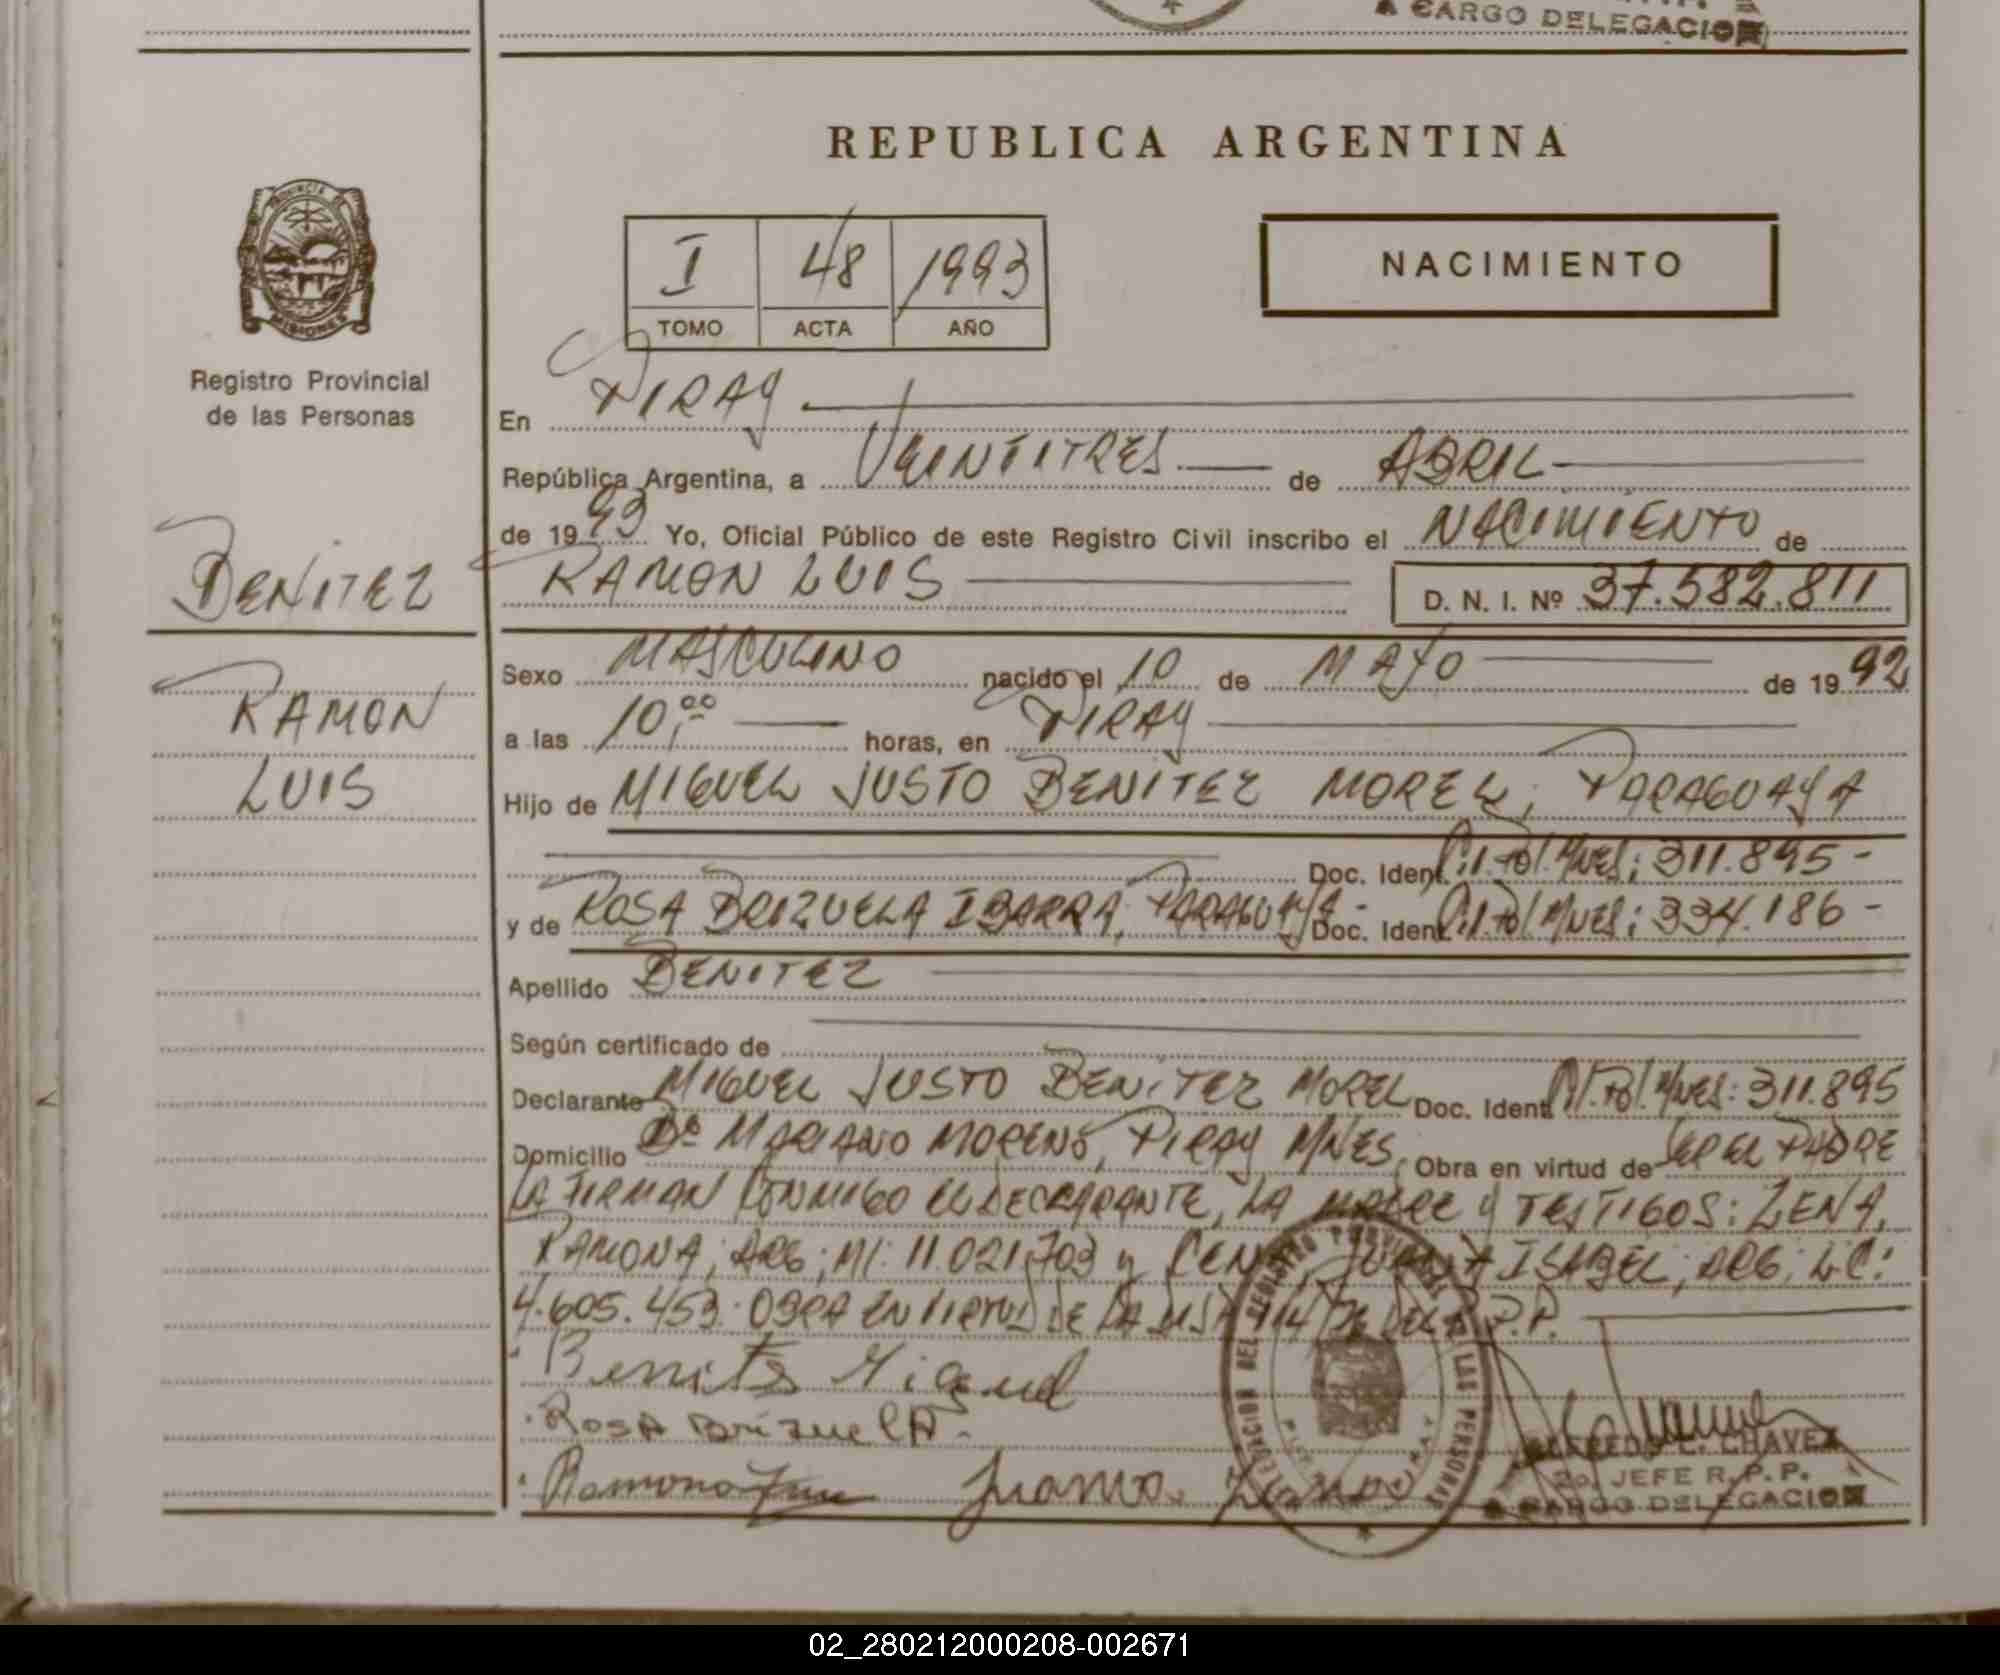 A CARGO DELEGACION
REPUBLICA ARGENTINA
PROVINCIA
MISIONES
Registro Provincial
de las Personas
I 48 1993
TOMO ACTA AÑO
NACIMIENTO
En PIRAY
República Argentina, a VEINTITRES de ABRIL
de 1993 Yo, Oficial Público de este Registro Civil inscribo el NACIMIENTO de
RAMON LUIS D. N. I. Nº 37.582.811
BENITEZ
RAMON
LUIS
Sexo MASCULINO nacido el 10 de MAYO de 1992
a las 10,00 horas, en PIRAY
Hijo de MIGUEL JUSTO BENITEZ MOREL, PARAGUAYA
Doc. Ident. C.I. Pol. Mnes: 311.895-
y de ROSA BRIZUELA IBARRA, PARAGUAYA- Doc. Ident. C.I. Pol Mnes: 334.186-
Apellido BENITEZ
Según certificado de
Declarante MIGUEL JUSTO BENITEZ MOREL Doc. Ident. Pol. Mnes: 311.895
Domicilio Bº MARIANO MORENO, PIRAY MNES, Obra en virtud de SER EL PADRE
LA FIRMAN CONMIGO EL DECLARANTE, LA MADRE Y TESTIGOS: ZENA,
RAMONA; ARG; MI: 11.021.703 y ISABEL; ARG; L.C:
4.605.453. OBRA EN VIRTUD DE LA
Benitez Miguel
ROSA BrizuelA.
Ramona Juana
DELEGACION DEL REGISTRO PROVINCIAL DE LAS PERSONAS
ALFREDO L. CHAVEZ
2o. JEFE R. P. P.
A CARGO DELEGACION
02_280212000208-002671